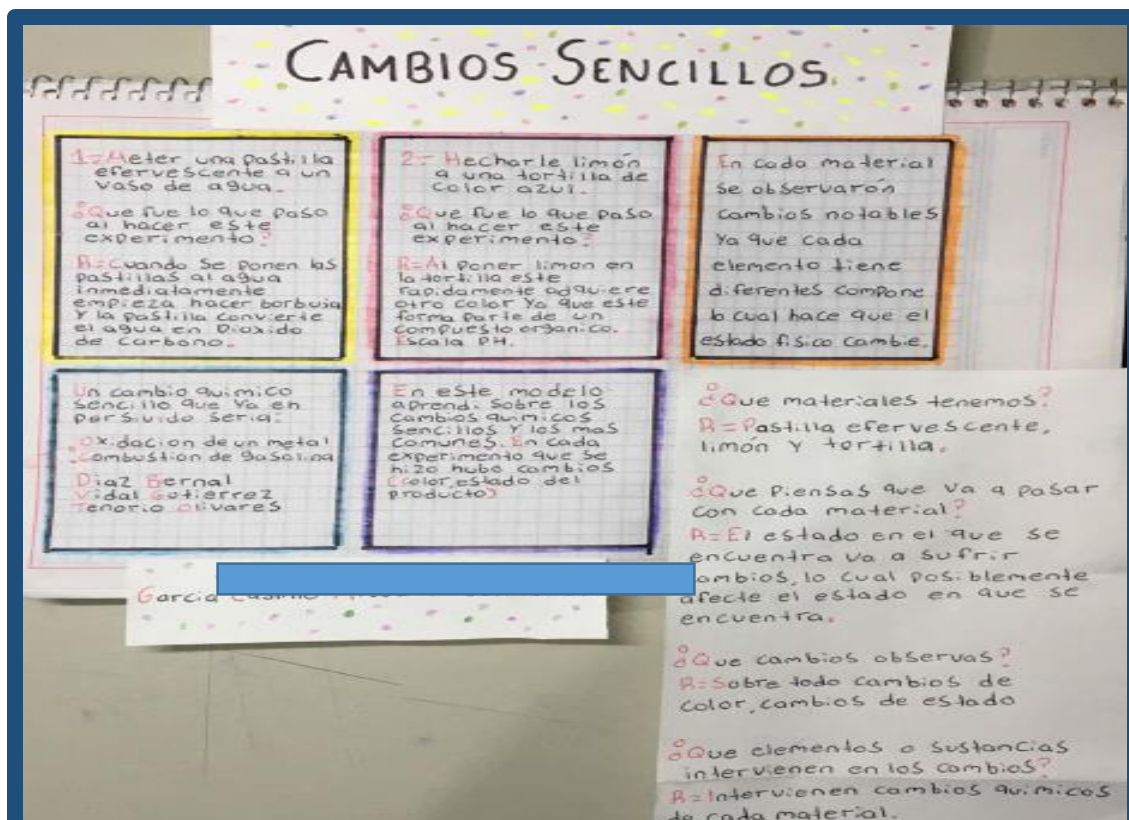 CAMBIOS SENCILLOS.
1=Meter una pastilla
efervescente a un
vaso de agua.
¿Que fue lo que paso
al hacer este
experimento?
R=Cuando se ponen las
pastillas al agua
inmediatamente
empieza hacer borbuja
y la pastilla convierte
el agua en Dioxido
de Carbono.
2= Hecharle limón
a una tortilla de
color azul.
¿Que fue lo que paso
al hacer este
experimento?
R=Al poner limon en
la tortilla este
rapidamente adquiere
otro color Ya que este
forma parte de un
compuesto organico.
Escala PH.
En cada material
se observarón
cambios notables
Ya que cada
elemento tiene
diferentes compone
lo cual hace que el
estado fisico cambie.
Un cambio quimico
sencillo que Ya en
persivido seria:
Oxidacion de un metal
Combustion de gasolina
Diaz Bernal
Vidal Gutierrez
Tenorio Olivares
En este modelo
aprendi sobre los
cambios quimicos
sencillos y los mas
comunes. En cada
experimento que se
hizo hubo cambios
(color, estado del
producto)
¿Que materiales tenemos?
R=Pastilla efervescente,
limón y tortilla.
¿Que Piensas que va a pasar
con cada material?
R=El estado en el que se
encuentra va a sufrir
ambios, lo cual posiblemente
afecte el estado en que se
encuentra.
¿Que cambios observas?
R=Sobre todo cambios de
color, cambios de estado
¿Que elementos o sustancias
intervienen en los cambios?
R=Intervienen cambios quimicos
de cada material.
Garcia